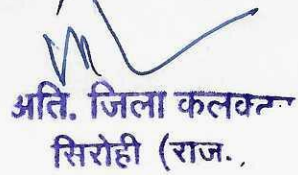 अति. जिला कलक्टर
सिरोही (राज.